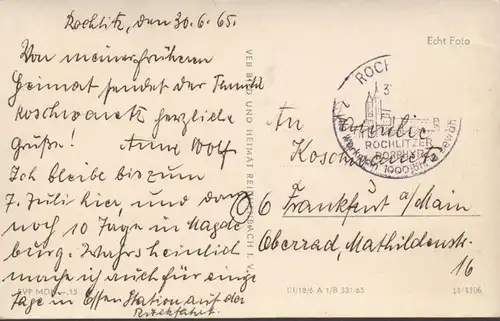 Rochlitz, den 30.6.65.
Von meiner frühern
Heimat sendet der Familie
Koschwanetz herzliche
Grüße! Anne Wolf
Ich bleibe bis zum
7. Juli hier, und dann
noch 10 Tage in Magde
burg. Wahrscheinlich
mache ich auch für einige
Tage in Essen Station auf der
Rückfahrt.
EVP MDN -.15
VEB BILD UND HEIMAT REICHENBACH I. V.
Echt Foto
ROCH
ROCHLITZER
PORPHYR
An Familie
Koschwanetz
6 Frankfurt a/Main
Oberrad, Mathildenstr.
16
III/18/6 A 1/B 331 65
14/4106